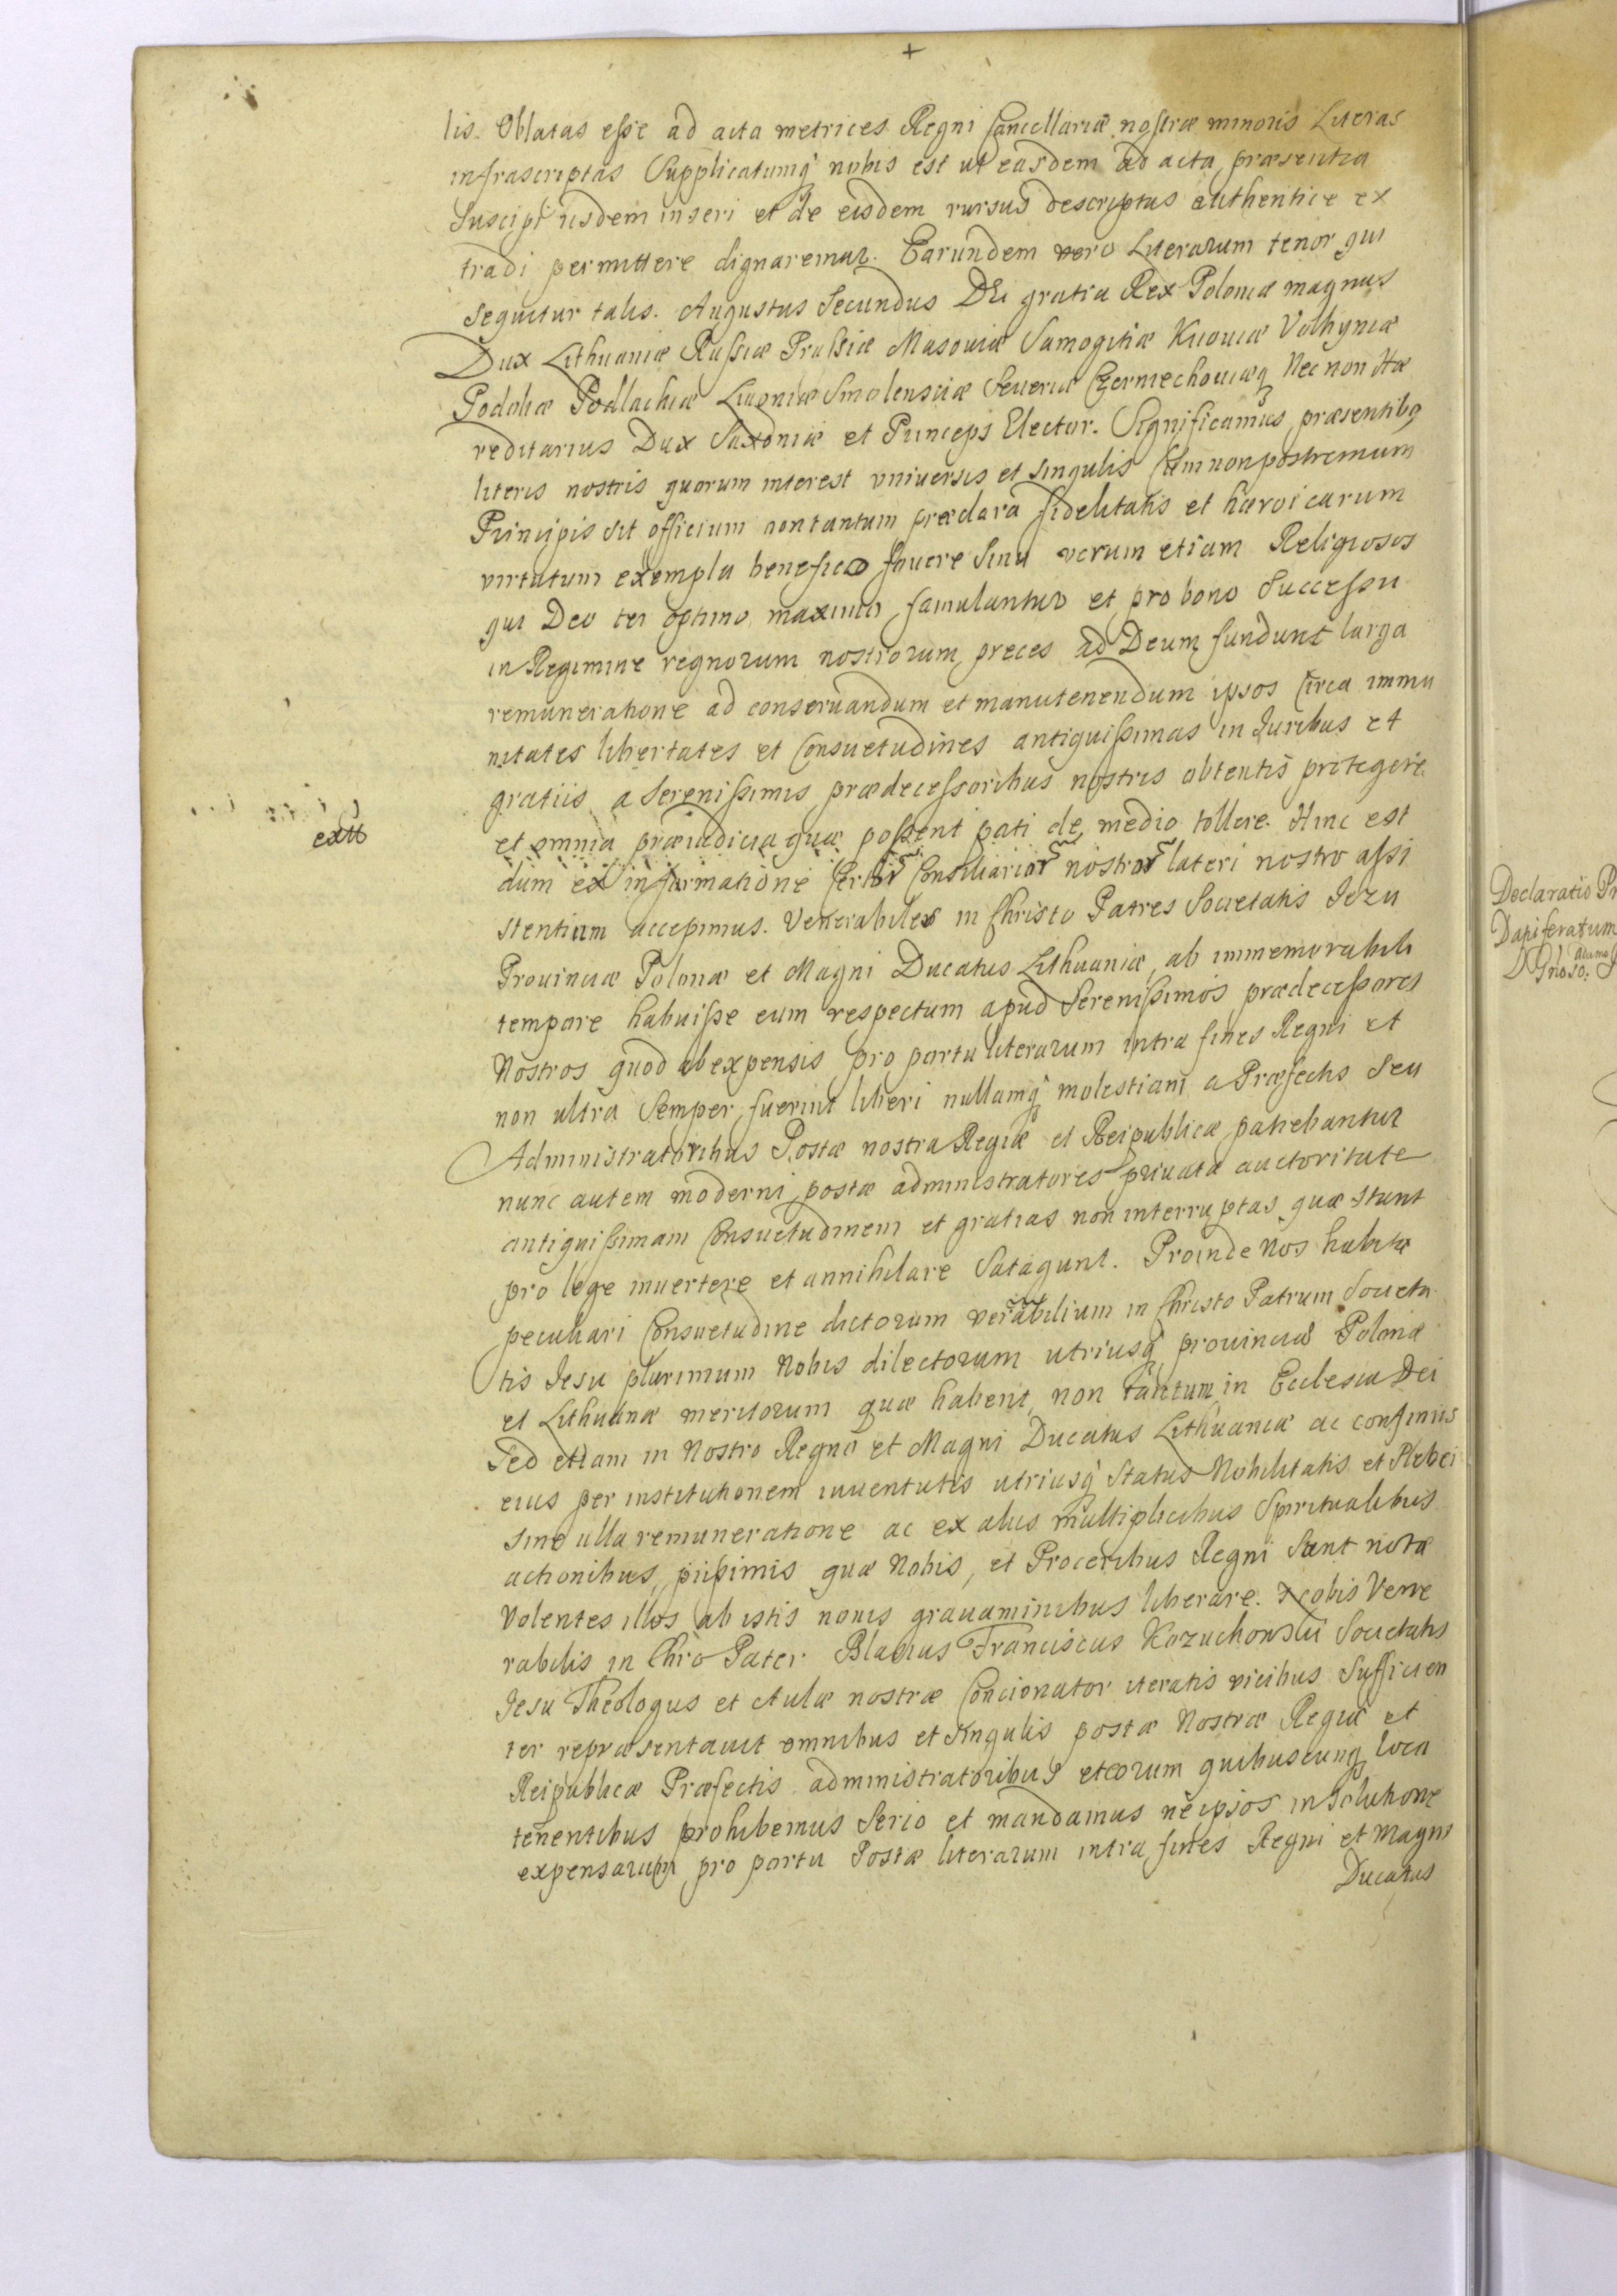 +
lis. Oblatas esse ad acta metrices Regni Cancellariæ nostræ minoris Literas
infrascriptas Supplicatumq nobis est ut easdem ad acta præsentia
Suscipi iisdem inseri et de eisdem rursus descriptas authentice ex
tradi permittere dignaremur. Earundem vero Literarum tenor qui
Sequitur talis. Augustus Secundus DEi gratia Rex Poloniæ magnus
Dux Lithuaniæ Russiæ Prussiæ Masouiæ Samogitiæ Kiiouiæ Volhyniæ
Podoliæ Podlachiæ Liuoniæ Smolensciæ Seueriæ Czerniechouiæq Nec non Hæ
reditarius Dux Saxoniæ et Princeps Elector. Significamus præsentibq
literis nostris quorum interest vniuersis et singulis Cum non postremum
Principis sit officium non tantum præclara fidelitatis et hæroicarum
virtutum exempla benefico fouere Sinu verum etiam Religiosos
qui Deo ter optimo maximo famulantur et pro bono Successu
in Regimine regnorum nostrorum preces ad Deum fundunt larga
remuneratione ad conseruandum et manutenendum ipsos Circa immu
nitates libertates et Consuetudines antiquissimas in Iuribus et
gratiis a Serenissimis prædecessoribus nostris obtentis protegere
et omnia præiudicia quæ possent pati de medio tollere. Hinc est
exti
dum ex informatione Certor Consiliarior nostror lateri nostro assi
stentium accepimus. Venerabiles in Christo Patres Societatis Iezu
Prouinciæ Polonæ et Magni Ducatus Lithuaniæ, ab immemorabili
tempore habuisse eum respectum apud Serenissimos prædecessores
Nostros quod ab expensis pro portu literarum intra fines Regni et
non ultra Semper fuerint liberi nullamq molestiam a Præfectis Seu
Administratoribus Postæ nostra Regiæ et Reipublicæ patiebantur
nunc autem moderni postæ administratores priuata auctoritate
antiquissimam Consuetudinem et gratias non interruptas quæ stant
pro lege inuertere et annihilare Satagunt. Proinde Nos habita
peculiari Consuetudine dictorum Verabilium in Christo Patrum Societa
tis Iesu plurimum Nobis dilectorum utriusq prouinciæ Polonæ
et Lithuanæ meritorum quæ habent non tantum in Ecclesia Dei
Sed etiam in Nostro Regno et Magni Ducatus Lithuaniæ ac confiniis
eius per institutionem iuuentutis utriusq Status Nobilitatis et Plebei
sine ulla remuneratione ac ex aliis multiplicibus Spiritualibus
actionibus, piissimis quæ Nobis, et Proceribus Regni Sunt nota
Volentes illos ab istis nouis grauaminibus liberare. cobis Vene
rabilis in Chro Pater Blasius Franciscus Kozuchowski Societatis
Iesu Theologus et Aulæ nostræ Concionator iteratis vicibus Sufficien
ter repræsentauit omnibus et Singulis postæ Nostræ Regiæ et
Reipublicæ Præfectis administratoribus et eorum quibuscunq loca
tenentibus prohibemus Serio et mandamus ne ipsos in Solutione
expensarum pro portu Postæ literarum intra fines Regni et Magni
Ducatus
Declaratio Pr
Dapiferatum
Gnoso: